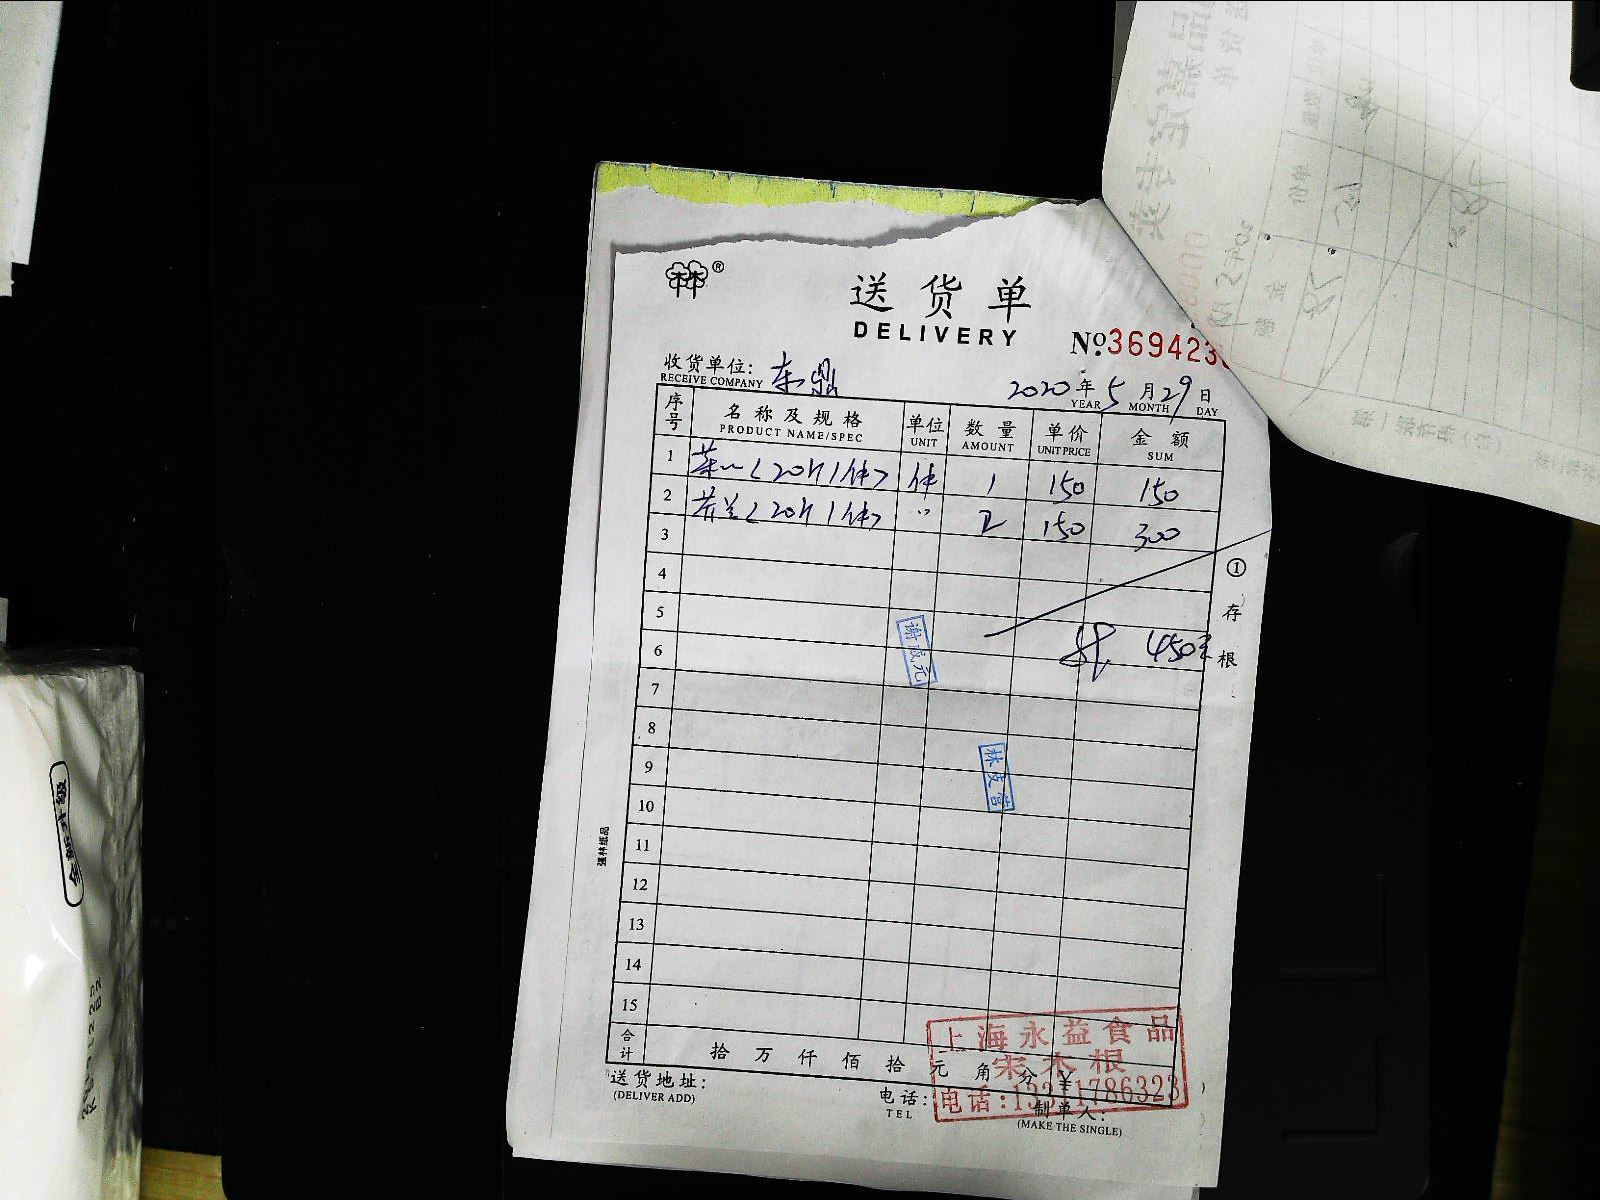 林林®
送货单
DELIVERY
№369423
收货单位: 东鼎
RECEIVE COMPANY
2020年5月29日
YEAR MONTH DAY
序号 名称及规格 单位 数量 单价 金额
PRODUCT NAME/SPEC UNIT AMOUNT UNIT PRICE SUM
1 件 1 150 150
2 〃 2 150 300
3
4
5
6 450元
7
8
9
10
11
12
13
14
15
①存根
谢成元
强林纸品
合计 拾 万 仟 佰 拾 元 角 分 ¥
上海永益食品
宋木根
电话:
送货地址:
(DELIVER ADD)
电话:
TEL
制单人:
(MAKE THE SINGLE)